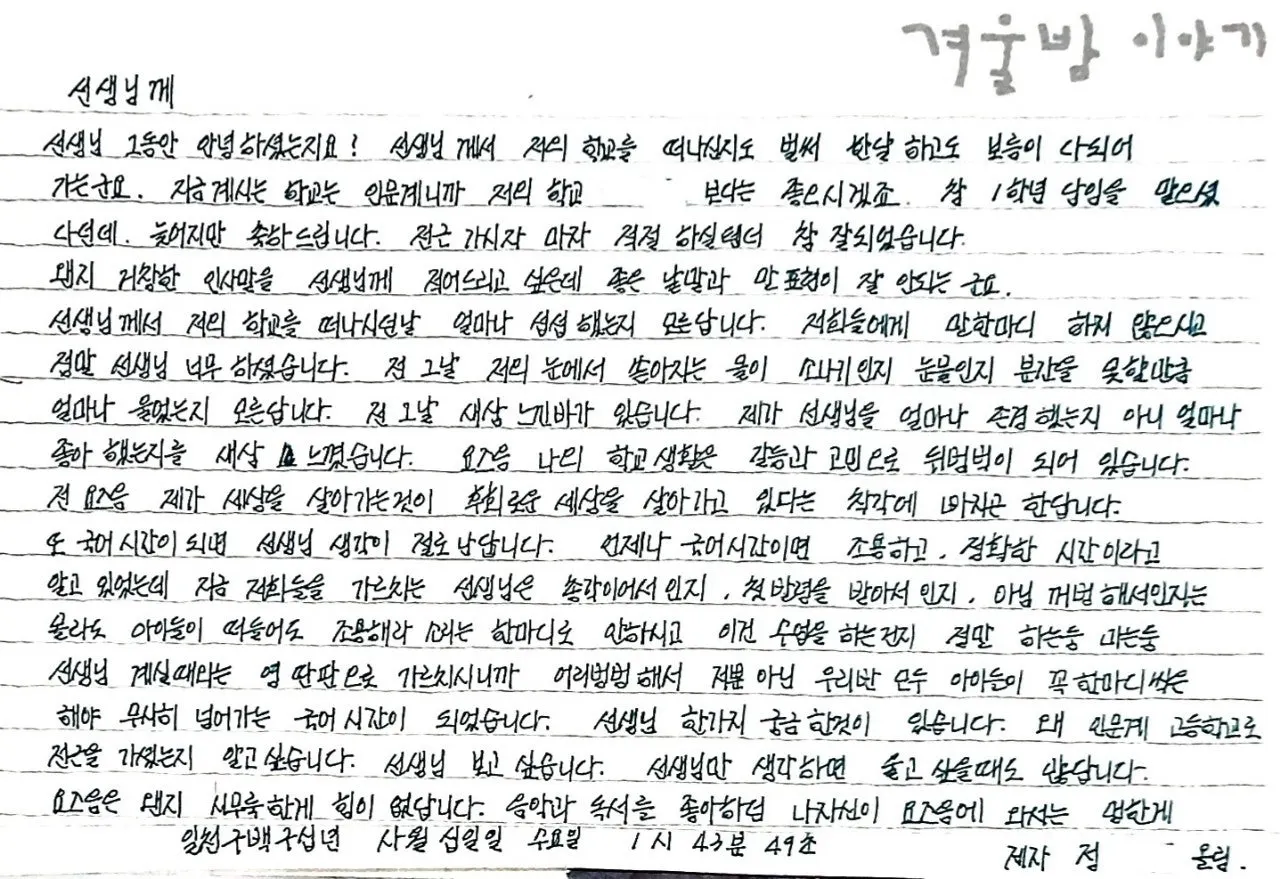 겨울밤 이야기
선생님께
선생님 그동안 안녕하셨는지요! 선생님께서 저의 학교를 떠나신지도 벌써 한달 하고도 보름이 다되어
가는군요. 지금계시는 학교는 인문계니까 저의 학교 보다는 좋으시겠죠. 참 1학년 담임을 맡으셨
다던데. 늦어지만 축하드립니다. 전근 가시자 마자 적절 하실텐데 참 잘되었습니다.
왠지 거창한 인사말을 선생님께 적어드리고 싶은데 좋은 낱말과 말 표현이 잘 안되는 군요.
선생님께서 저의 학교를 떠나시던날 얼마나 섭섭했는지 모른답니다. 저희들에게 말한마디 하지 않으시고
정말 선생님 너무 하셨습니다. 전 그날 저의 눈에서 쏟아지는 물이 소나기인지 눈물인지 분간을 못할만큼
얼마나 울었는지 모른답니다. 전 그날 새삼 느낀바가 있습니다. 제가 선생님을 얼마나 존경했는지 아니 얼마나
좋아 했는지를 새삼 느꼈습니다. 요즈음 나의 학교생활은 갈등과 고민으로 뒤범벅이 되어 있습니다.
전 요즈음 제가 세상을 살아가는것이 후회로운 세상을 살아가고 있다는 착각에 빠지곤 한답니다.
또 국어시간이 되면 선생님 생각이 절로 난답니다. 언제나 국어시간이면 조용하고. 정확한 시간이라고
알고 있었는데 지금 저희들을 가르치는 선생님은 총각이어서 인지. 첫발령을 받아서 인지. 아님 꺼벙해서인지는
몰라도 아이들이 떠들어도 조용해라 소리는 한마디로 안하시고 이건 수업을 하는건지 정말 하는둥 마는둥
선생님 계실때와는 영 딴판으로 가르치시니까 어리벙벙해서 저뿐 아닌 우리반 모두 아이들이 꼭 한마디씩은
해야 무사히 넘어가는 국어시간이 되었습니다. 선생님 한가지 궁금한것이 있습니다. 왜 인문계 고등학교로
전근을 가셨는지 알고싶습니다. 선생님 보고 싶습니다. 선생님만 생각하면 울고 싶을때도 많답니다.
요즈음은 왠지 시무룩하게 힘이 없답니다. 음악과 독서를 좋아하던 나자신이 요즈음에 와서는 멍하게
일천구백구십년 사월 십일일 수요일 1시 43분 49초
제자 정 올림.